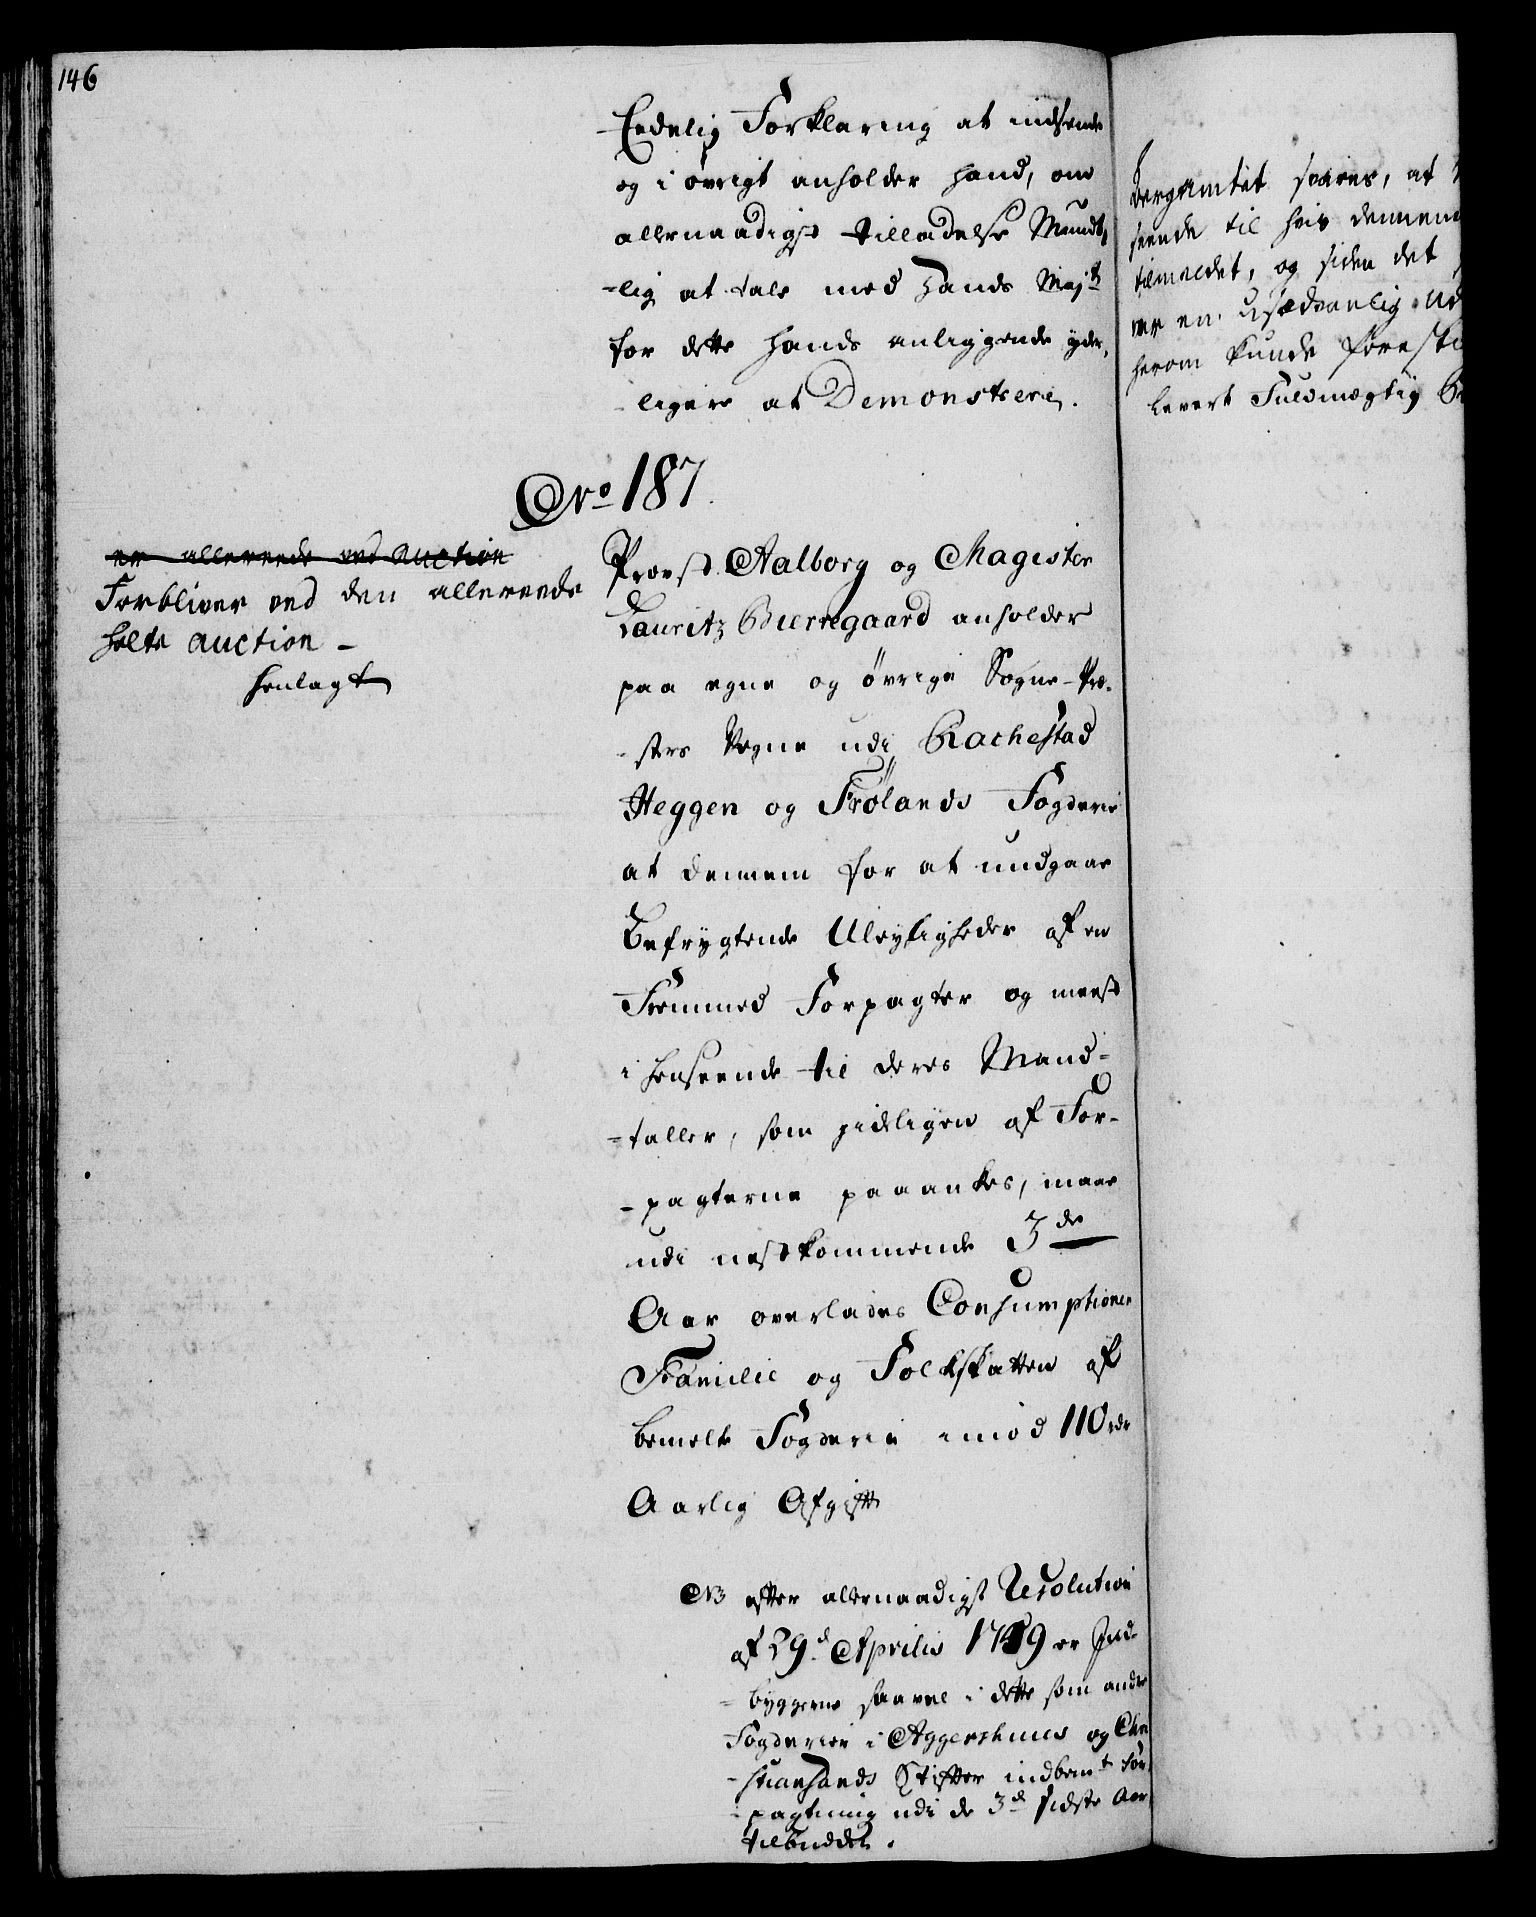 146
Eedelig Forklaring at indsende
og i øvrigt anholder hand, om
allernaadigst tilladelse Mundt,
-lig at tale med Hands Majt
for dette hands anliggende yder,
-ligere at Demonstrere.
No 187
er allereede ved Auction
Forbliver ved den allereede
holte Auction -
henlagt
Provst Aalborg og Magister
Lauritz Bierregaard anholder
paa egne og øvrige Sogne-Præ-
-sters Vegne udi Rachestad
Heggen og Frølands Fogderie
at dennem for at undgaae
Befrygtende Uleyligheder af en
Fremmed Forpagter og meest
i henseende til deres Mand-
-taller, som zidligen af For-
-pagterne paaankes, maae
udi nestkommende 3de
Aar overlades Consumptionen
Familie og Folckskatten af
bemelte Fogderie imod 110 rdr
Aarlig Afgift
NB efter allernaadigst Resolution
af 29d Aprilis 1749 er Ind-
-byggerne saavel i dette som andre
Fogderier i Aggershuus og Chri
-stiansands Stifter indbemt For,
-pagtning udi de 3d sidste Aar
tilbudden.
Bergamtet svares, at
seende til hvis dennem
tilmeldet, og siden det
er en usædvanlig Ud
herom kunde forest
levert Fuldmægtig